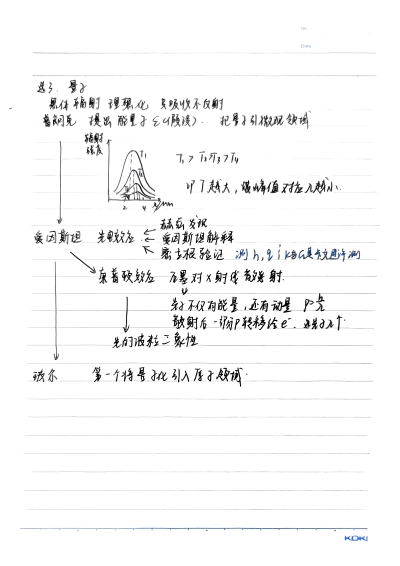 选3. 量子
黑体辐射 理想化 只吸收不反射
普朗克 提出能量子 ε (假设). 把量子引入微观领域
辐射
强度
T₁
T₁ > T₂ > T₃ > T₄
2 4
即 T 越大, 峰值对应 λ 越小.
爱因斯坦 光电效应
赫兹发现
爱因斯坦解释
密立根验证 测 h,
康普顿效应 石墨对 X 射线散射.
光子不仅有能量, 还有动量 P=
散射后一部分 P 转移给 e⁻.
光的波粒二象性
玻尔 第一个将量子化引入原子领域.
KOKI